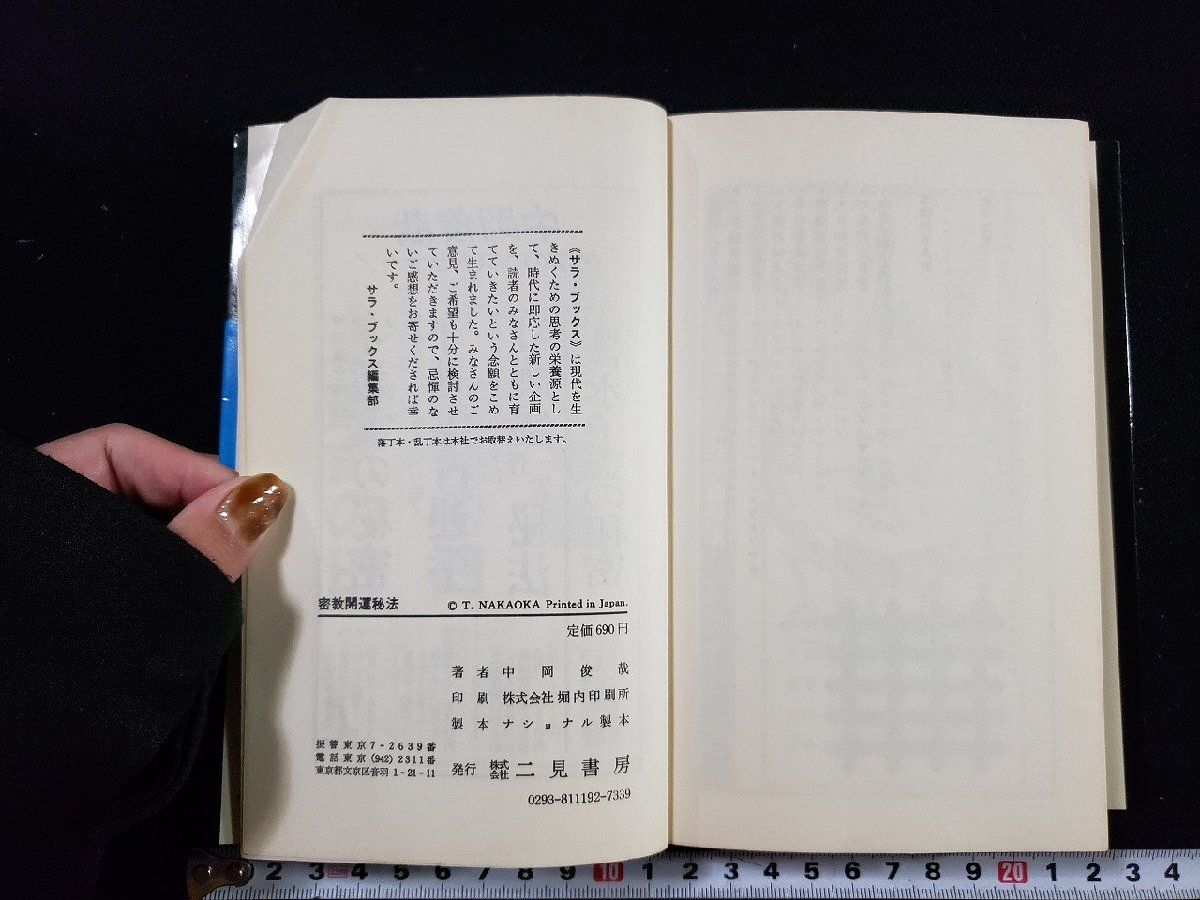 《サラ・ブックス》は現代を生
きぬくための思考の栄養源とし
て、時代に即応した新しい企画
を、読者のみなさんとともに育
てていきたいという念願をこめ
て生まれました。みなさんのご
意見、ご希望も十分に検討させ
ていただきますので、忌憚のな
いご感想をお寄せくだされば幸
いです。
サラ・ブックス編集部
落丁本・乱丁本は本社でお取替えいたします。
密教開運秘法 © T. NAKAOKA Printed in Japan.
定価690円
著者 中岡俊哉
印刷 株式会社堀内印刷所
製本 ナショナル製本
発行 株式会社 二見書房
振替東京7-2639番
電話東京(942)2311番
東京都文京区音羽1-21-11
0293-811192-7339
2 3 4 5 6 7 8 9 10 1 2 3 4 5 6 7 8 9 20 1 2 3 4